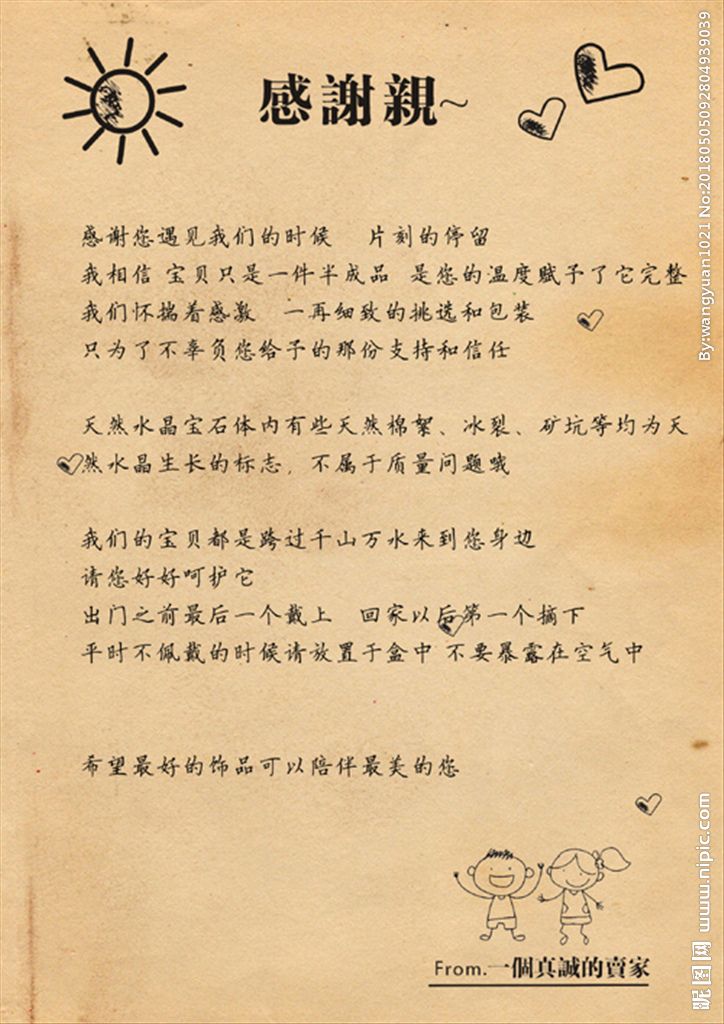 感謝親~
感谢您遇见我们的时候 片刻的停留
我相信 宝贝只是一件半成品 是您的温度赋予了它完整
我们怀揣着感激 一再细致的挑选和包装
只为了不辜负您给予的那份支持和信任
天然水晶宝石体内有些天然棉絮、冰裂、矿坑等均为天
然水晶生长的标志，不属于质量问题哦
我们的宝贝都是跨过千山万水来到您身边
请您好好呵护它
出门之前最后一个戴上 回家以后第一个摘下
平时不佩戴的时候请放置于盒中 不要暴露在空气中
希望最好的饰品可以陪伴最美的您
From.一個真誠的賣家
By:wangyuan1021 No:20180505092804939039
昵图网 www.nipic.com